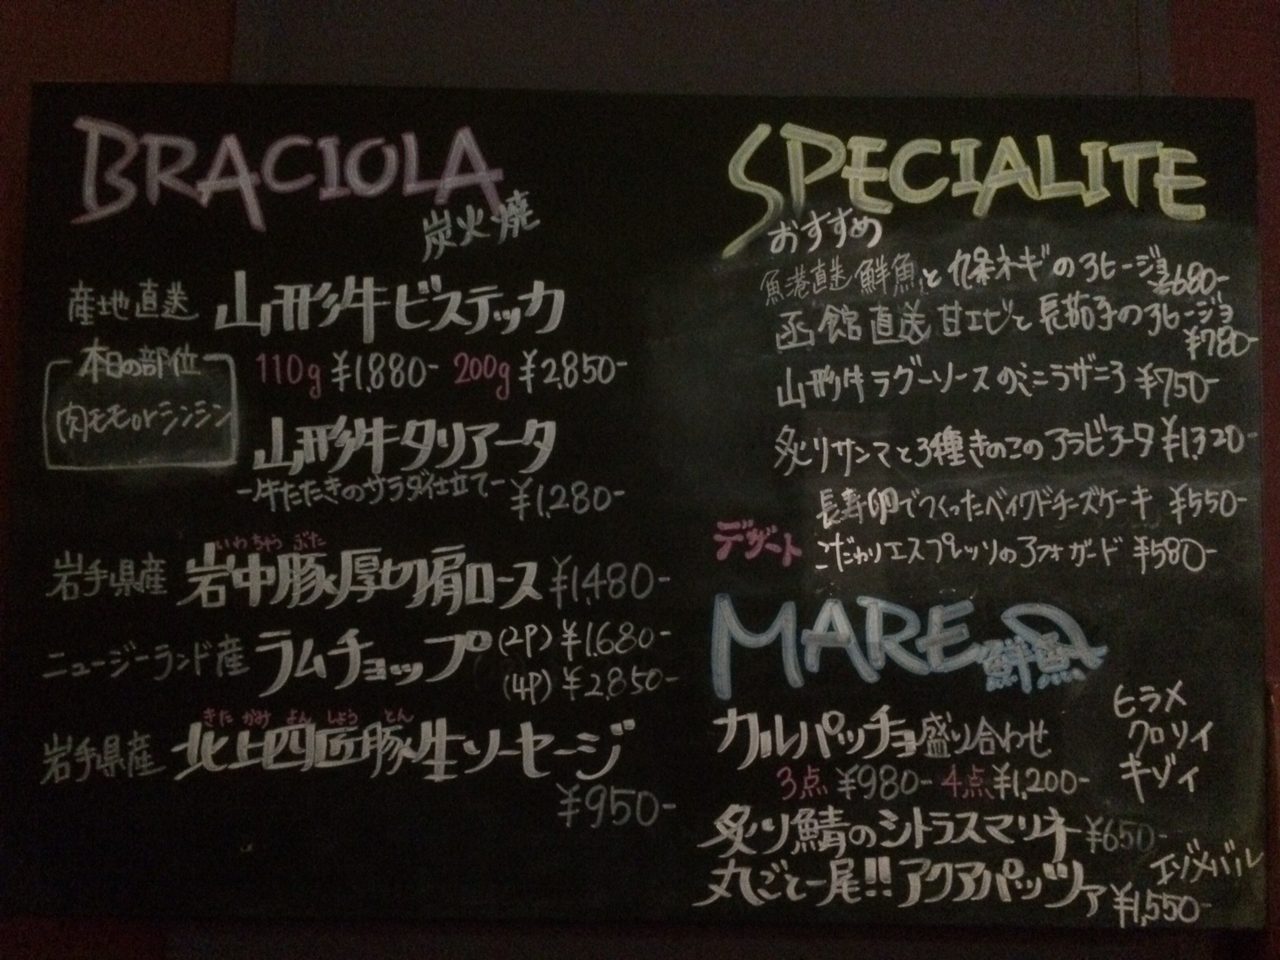 BRACIOLA
炭火焼
産地直送 山形牛ビステッカ
本日の部位
肉モモorシンシン
110g ¥1,880- 200g ¥2,850-
山形牛タリアータ
-牛たたきのサラダ仕立て- ¥1,280-
いわちゅう ぶた
岩手県産 岩中豚厚切肩ロース ¥1,480-
ニュージーランド産 ラムチョップ (2P) ¥1,680-
(4P) ¥2,850-
きた かみ よん しょう とん
岩手県産 北上四匠豚生ソーセージ
¥950-
SPECIALITE
おすすめ
魚港直送 鮮魚と九条ネギのアヒージョ ¥680-
函館直送 甘エビと長茄子のアヒージョ
¥780-
山形牛ラグーソースのミニラザニア ¥750-
炙りサンマと3種きのこのアラビアータ ¥1,320-
デザート
長寿卵でつくったベイクドチーズケーキ ¥550-
こだわりエスプレッソのアフォガード ¥580-
MARE 鮮魚
カルパッチョ盛り合わせ
3点 ¥980- 4点 ¥1,200-
ヒラメ
クロソイ
キゾイ
炙り鯖のシトラスマリネ ¥650-
丸ごと一尾!! アクアパッツァ
エゾメバル
¥1,550-